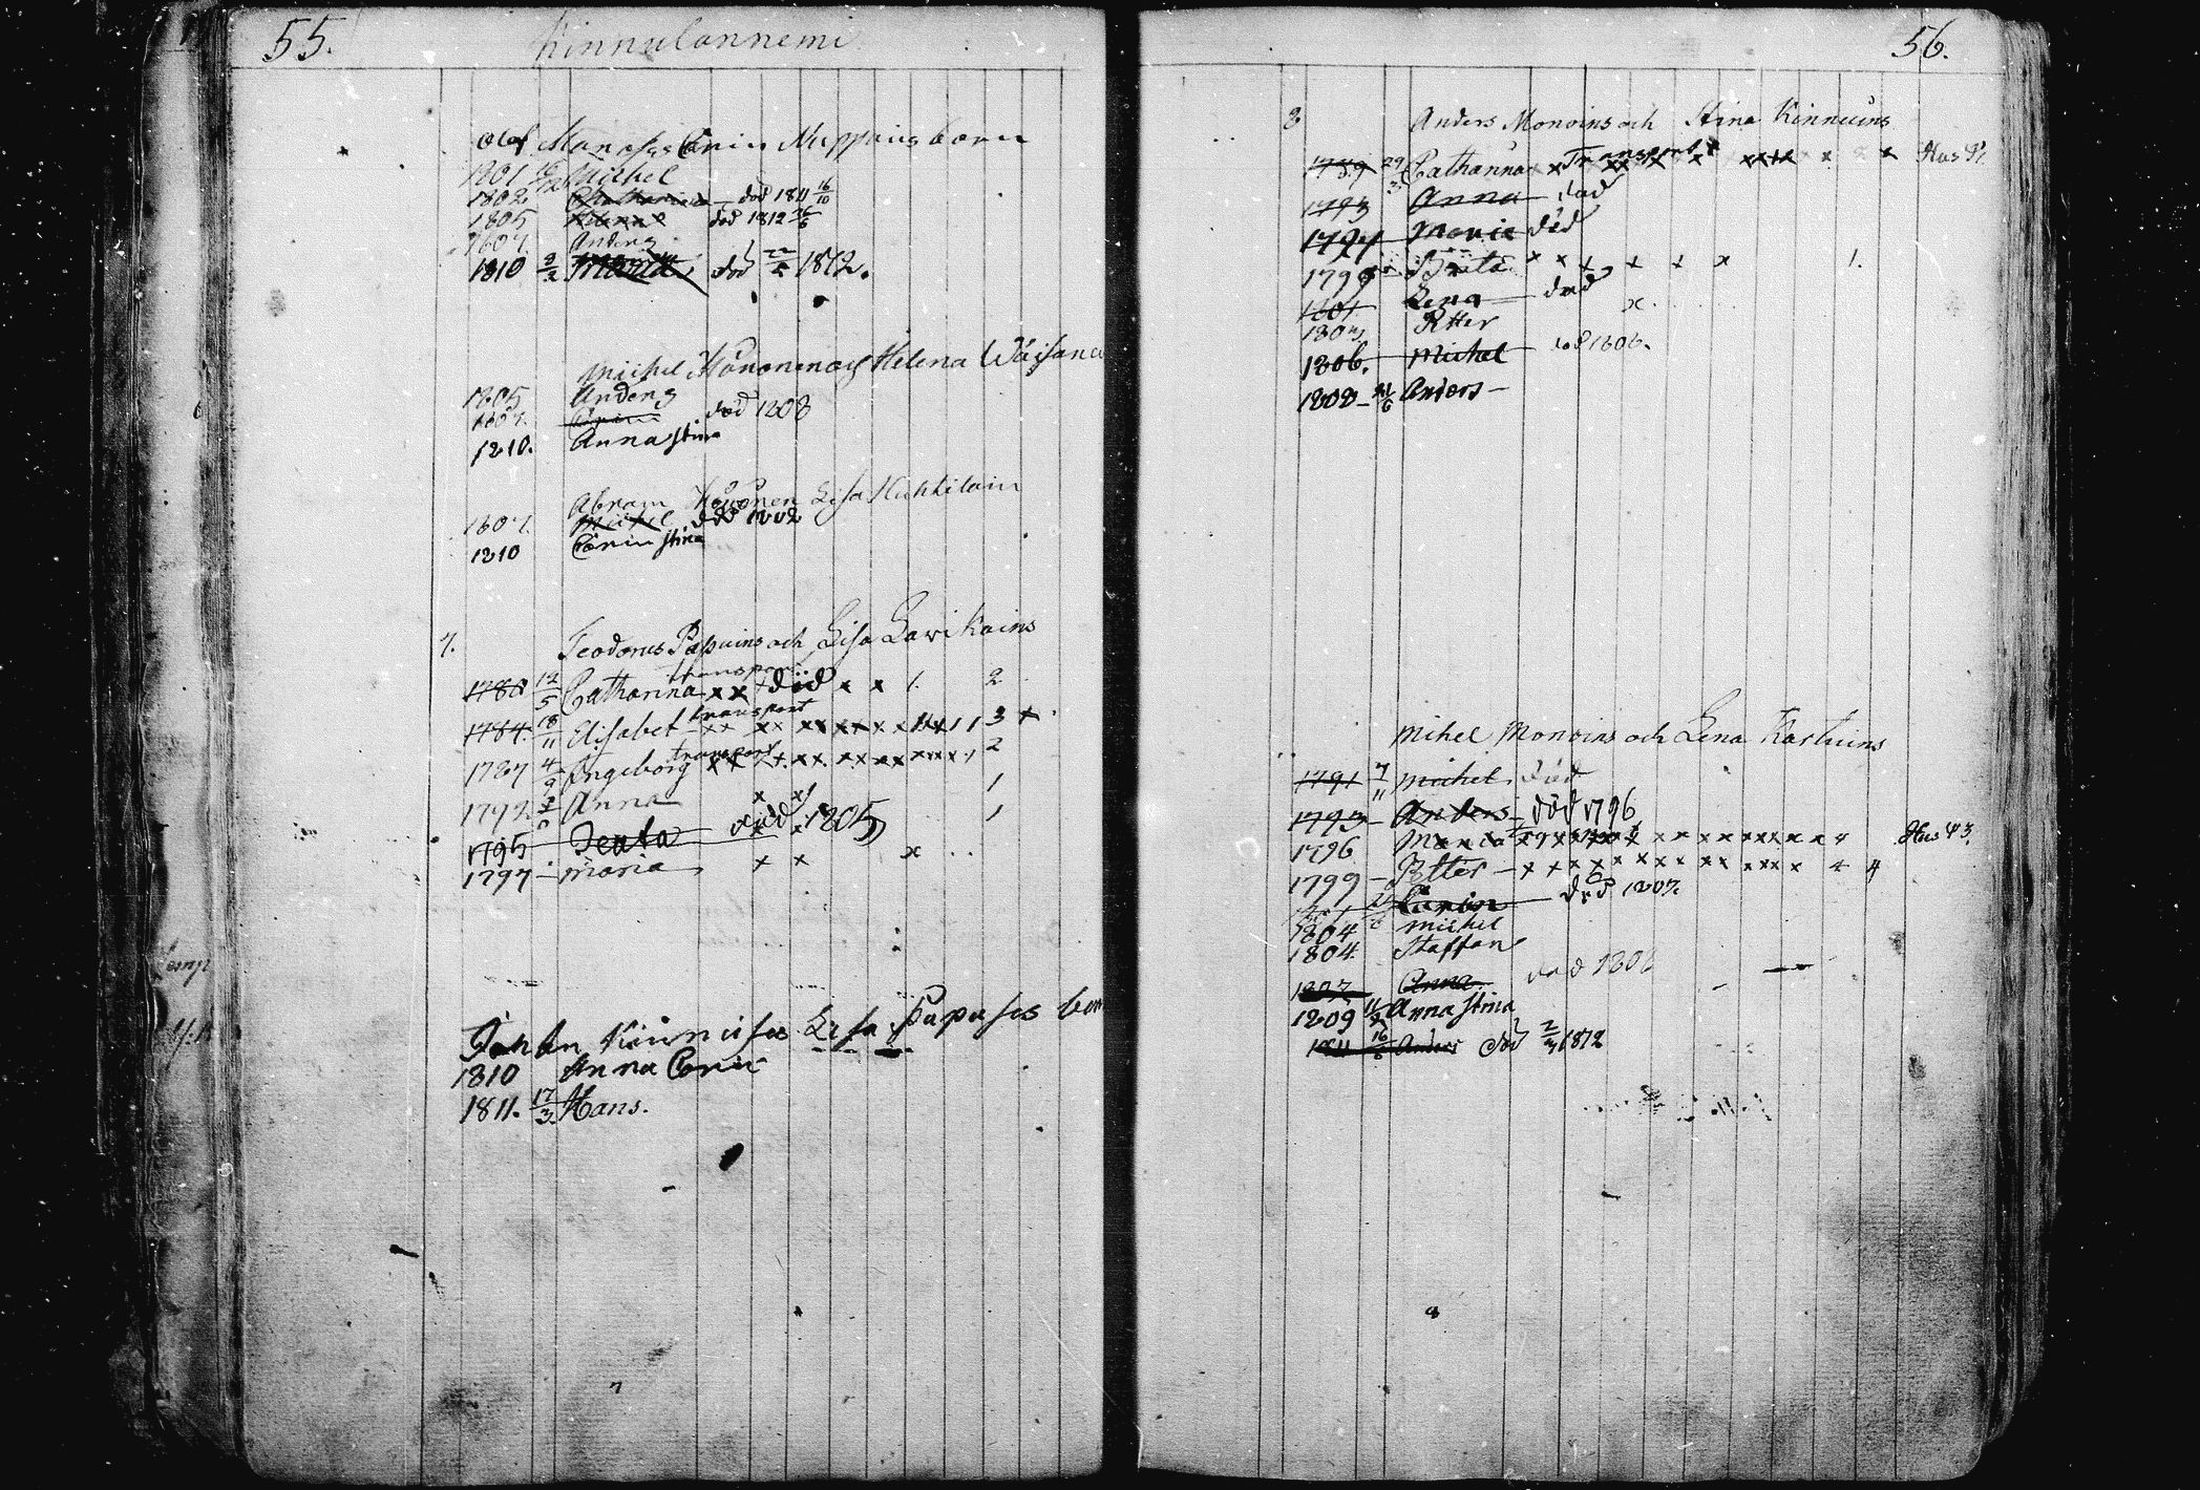 55.
Kinnulanniemi
Olof Manoses Carin Nuppoins barn
1801 Michel
1802 Chatharina död 1811 16/10
1805 död 1812 26/6
1807. Anders
1810 3/2 Maria död 22/5 1812.
Michel Könönen och Helena Wäisane
1805 Anders
1807. Carin död 1808
1810. Anna Stina
Abram Könönen Lisa Huhtilain
1807. Michel död 1808
1810 Carin Stina
7. Teodorus Papuins och Lisa Lavikains
transport
1780 12/5 Catharina x x död x x 1. 2
transport
1784. 18/11 Elisabet xx xx xx x x x x 3 x
transport
1787 4/9 Ingeborg x x x x xx xx xx xxxx 2
1792 Anna x x 1
1795 Beata död 1805 1
1797 – Maria x x x
Johan Kinnuises Lisa Papuses barn
1810 Anna Carin
1811. 17/3 Hans.
56.
8 Anders Monoins och Stina Kinnuins
Transport
1789 29/3 Catharina x x x x x x xxxx x x Hus
1793 Anna död
1797 Maria död
1799 Beata x x x x x x 1.
1801 Lena död
1803 Petter x
1806. Michel död 1806.
1808 – 21/6 Anders –
Mihel Monoins och Lena Karhuins
1791 7/11 Michel död
1793 – Anders – död 1796
1796 Maria x x x x x x x x x x x x 4 Hus 43.
1799 – Petter – x x x x x x x x x x x xxx x 4 4
Carin död 1807.
1804 Michel
1804. Staffan
1807 Anna död 1808
1809 11/2 Anna Stina
1811 16/6 Anders död 2/3 1812